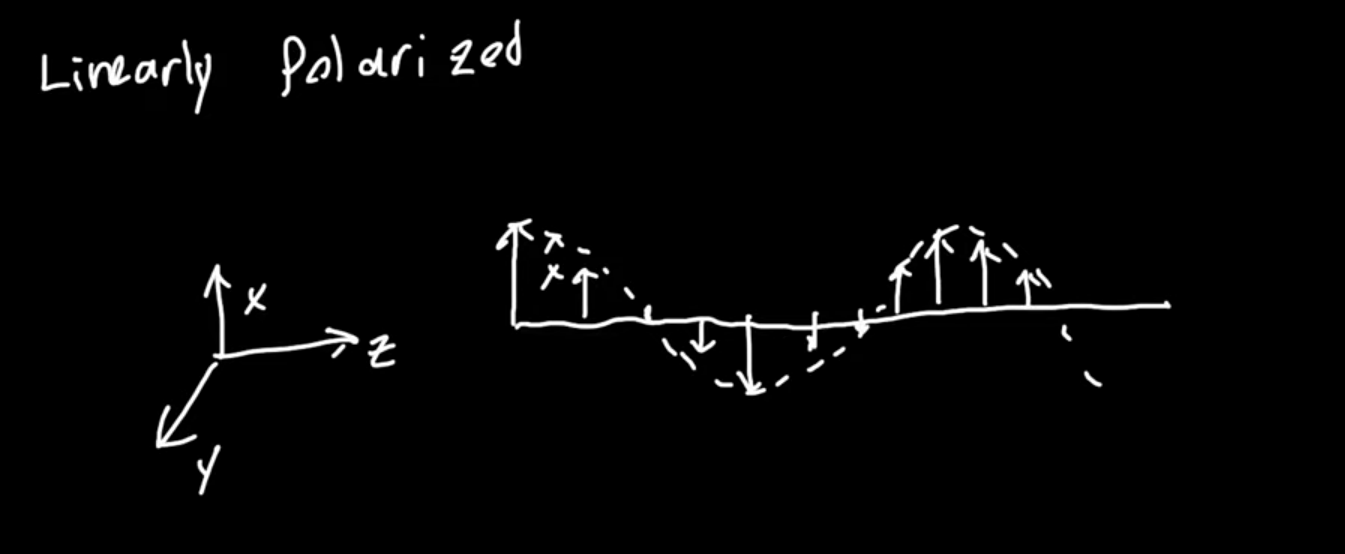 Linearly Polarized
x
z
y